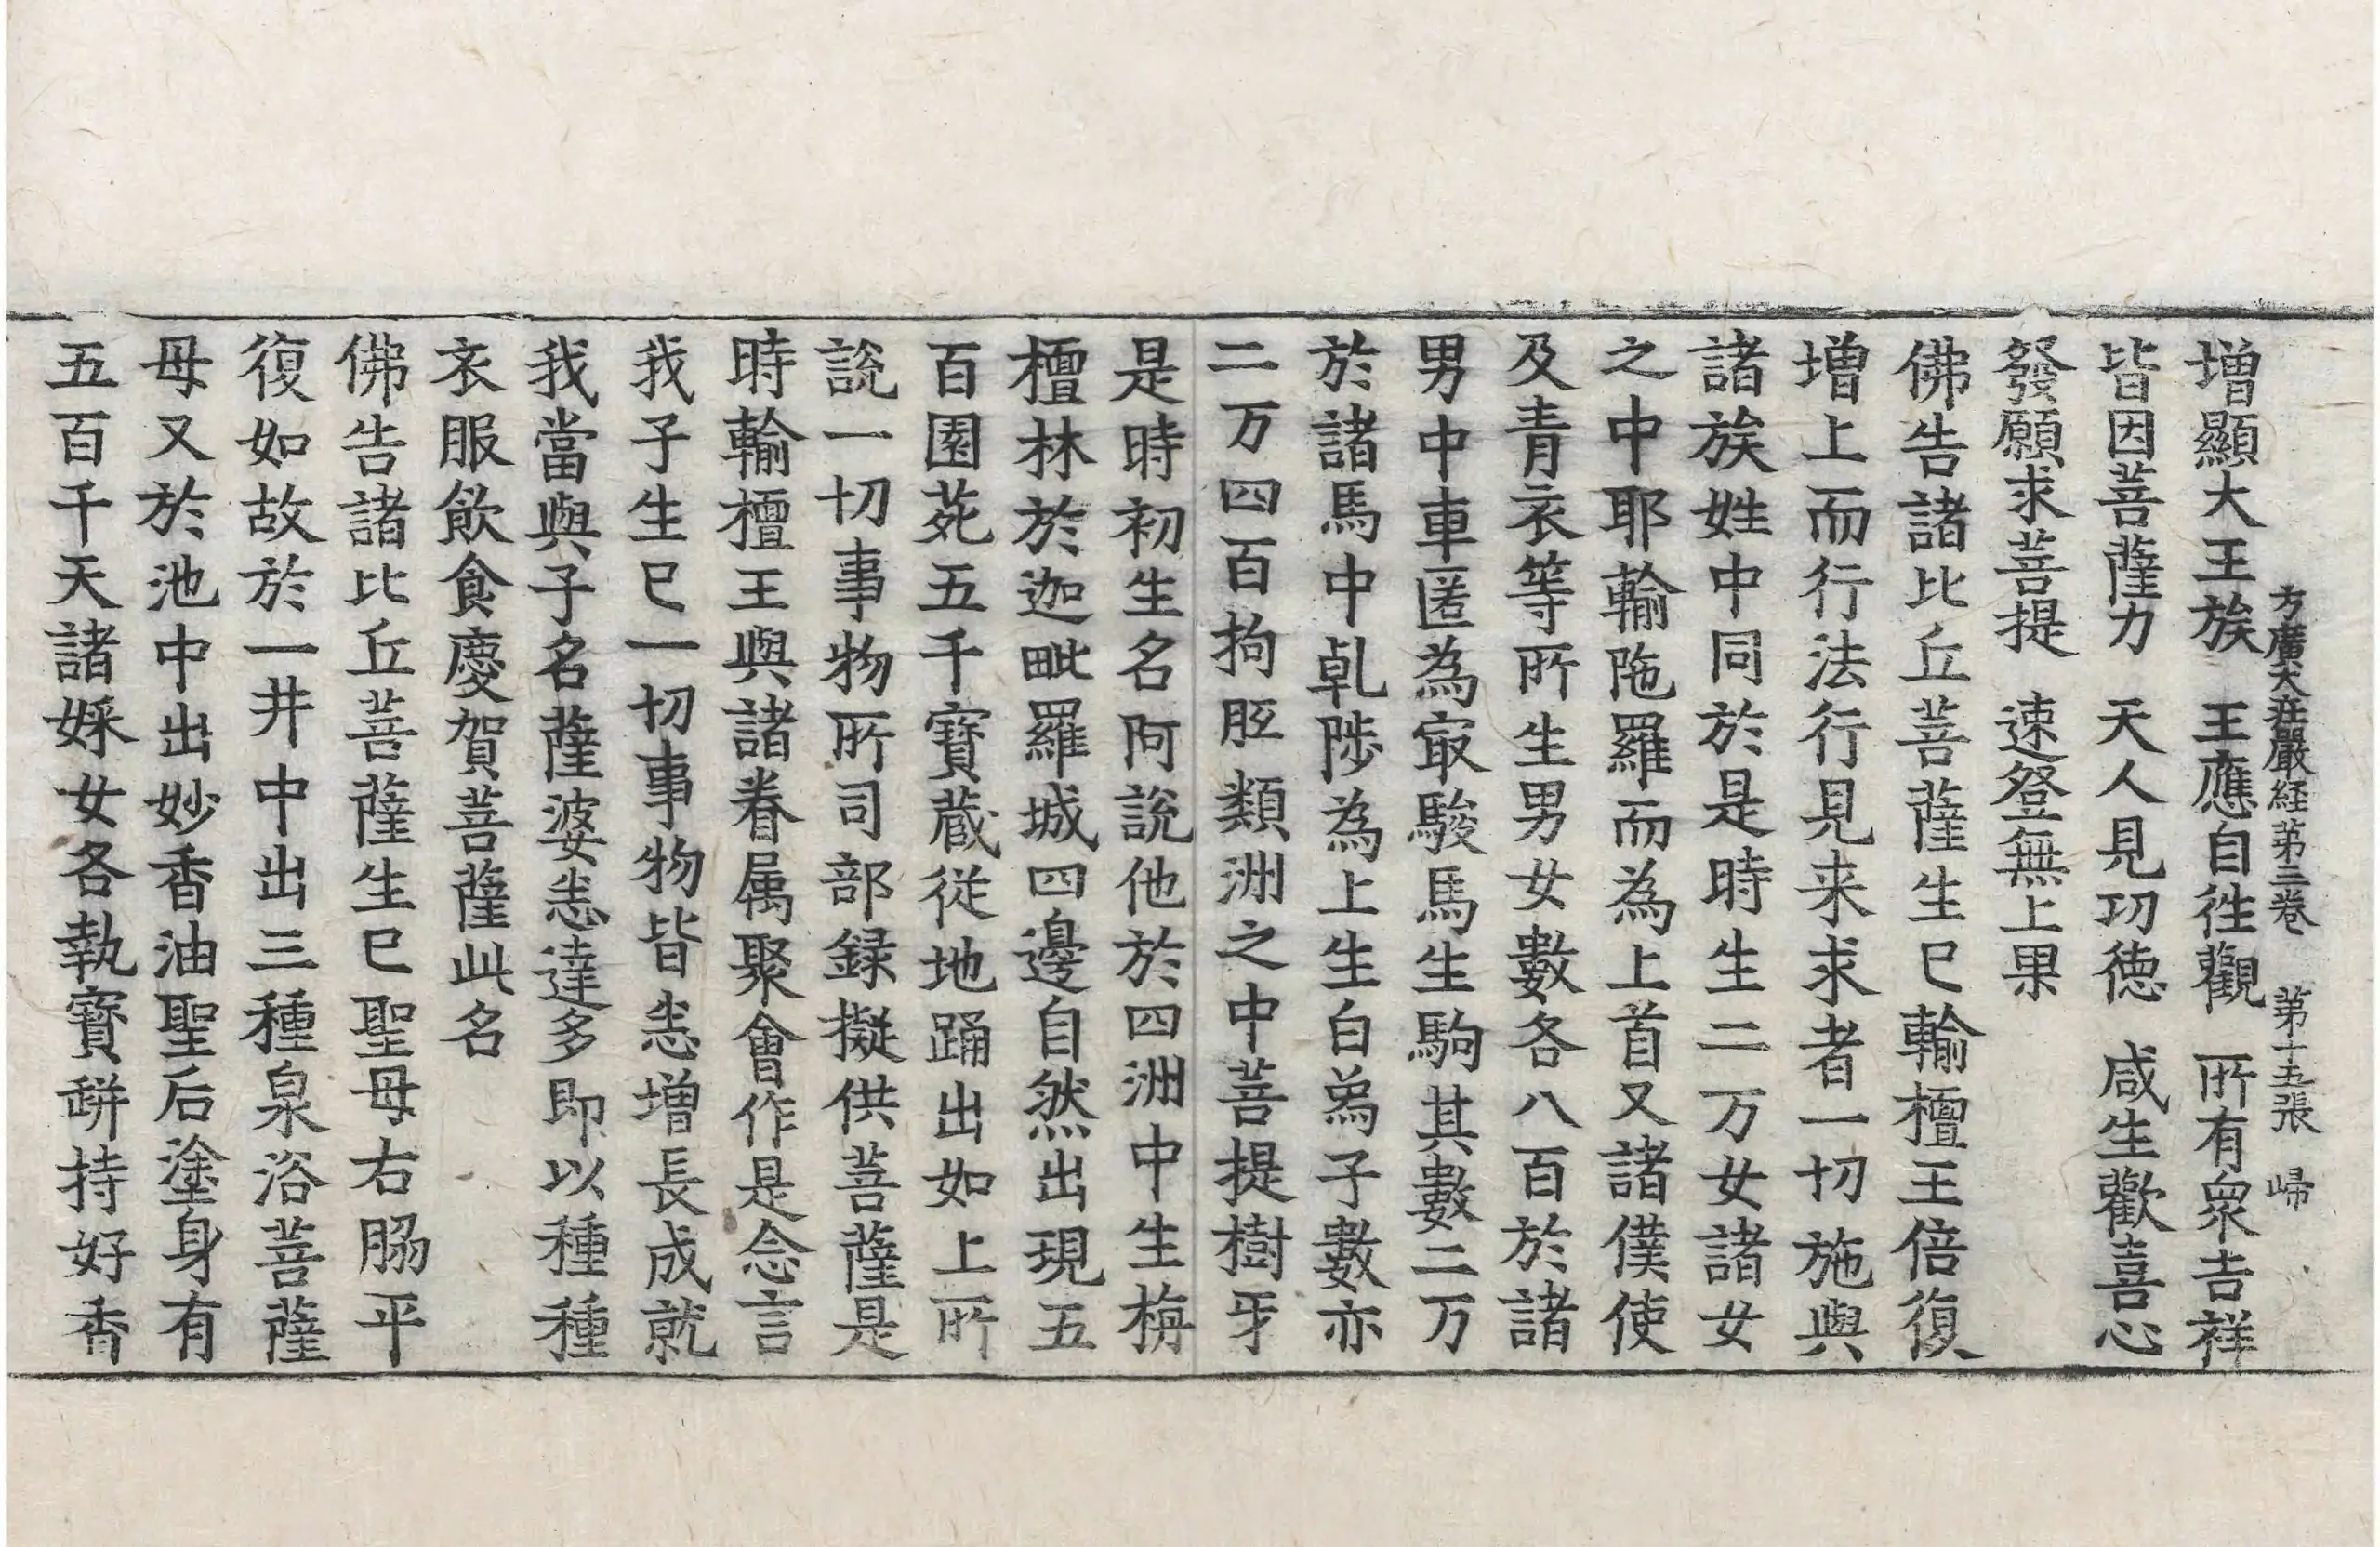 方廣大莊嚴経第三卷　第十五張　帰
增顯大王族　王應自往觀　所有衆吉祥
皆因菩薩力　天人見功德　咸生歡喜心
發願求菩提　速登無上果
佛告諸比丘菩薩生已輸檀王倍復
增上而行法行見来求者一切施與
諸族姓中同於是時生二万女諸女
之中耶輸陁羅而為上首又諸僕使
及青衣等所生男女數各八百於諸
男中車匿為㝡駿馬生駒其數二万
於諸馬中乹陟為上生白為子數亦
二万四百拘胝類洲之中菩提樹牙
是時初生名阿說他於四洲中生栴
檀林於迦毗羅城四邊自然出現五
百園苑五千寶蔵従地踊出如上所
說一切事物所司部録擬供菩薩是
時輸檀王與諸眷属聚會作是念言
我子生已一切事物皆悉增長成就
我當與子名薩婆悉達多即以種種
衣服飲食慶賀菩薩此名
佛告諸比丘菩薩生已聖母右脇平
復如故於一井中出三種泉浴菩薩
母又於池中出妙香油聖后塗身有
五百千天諸婇女各執寶缾持好香